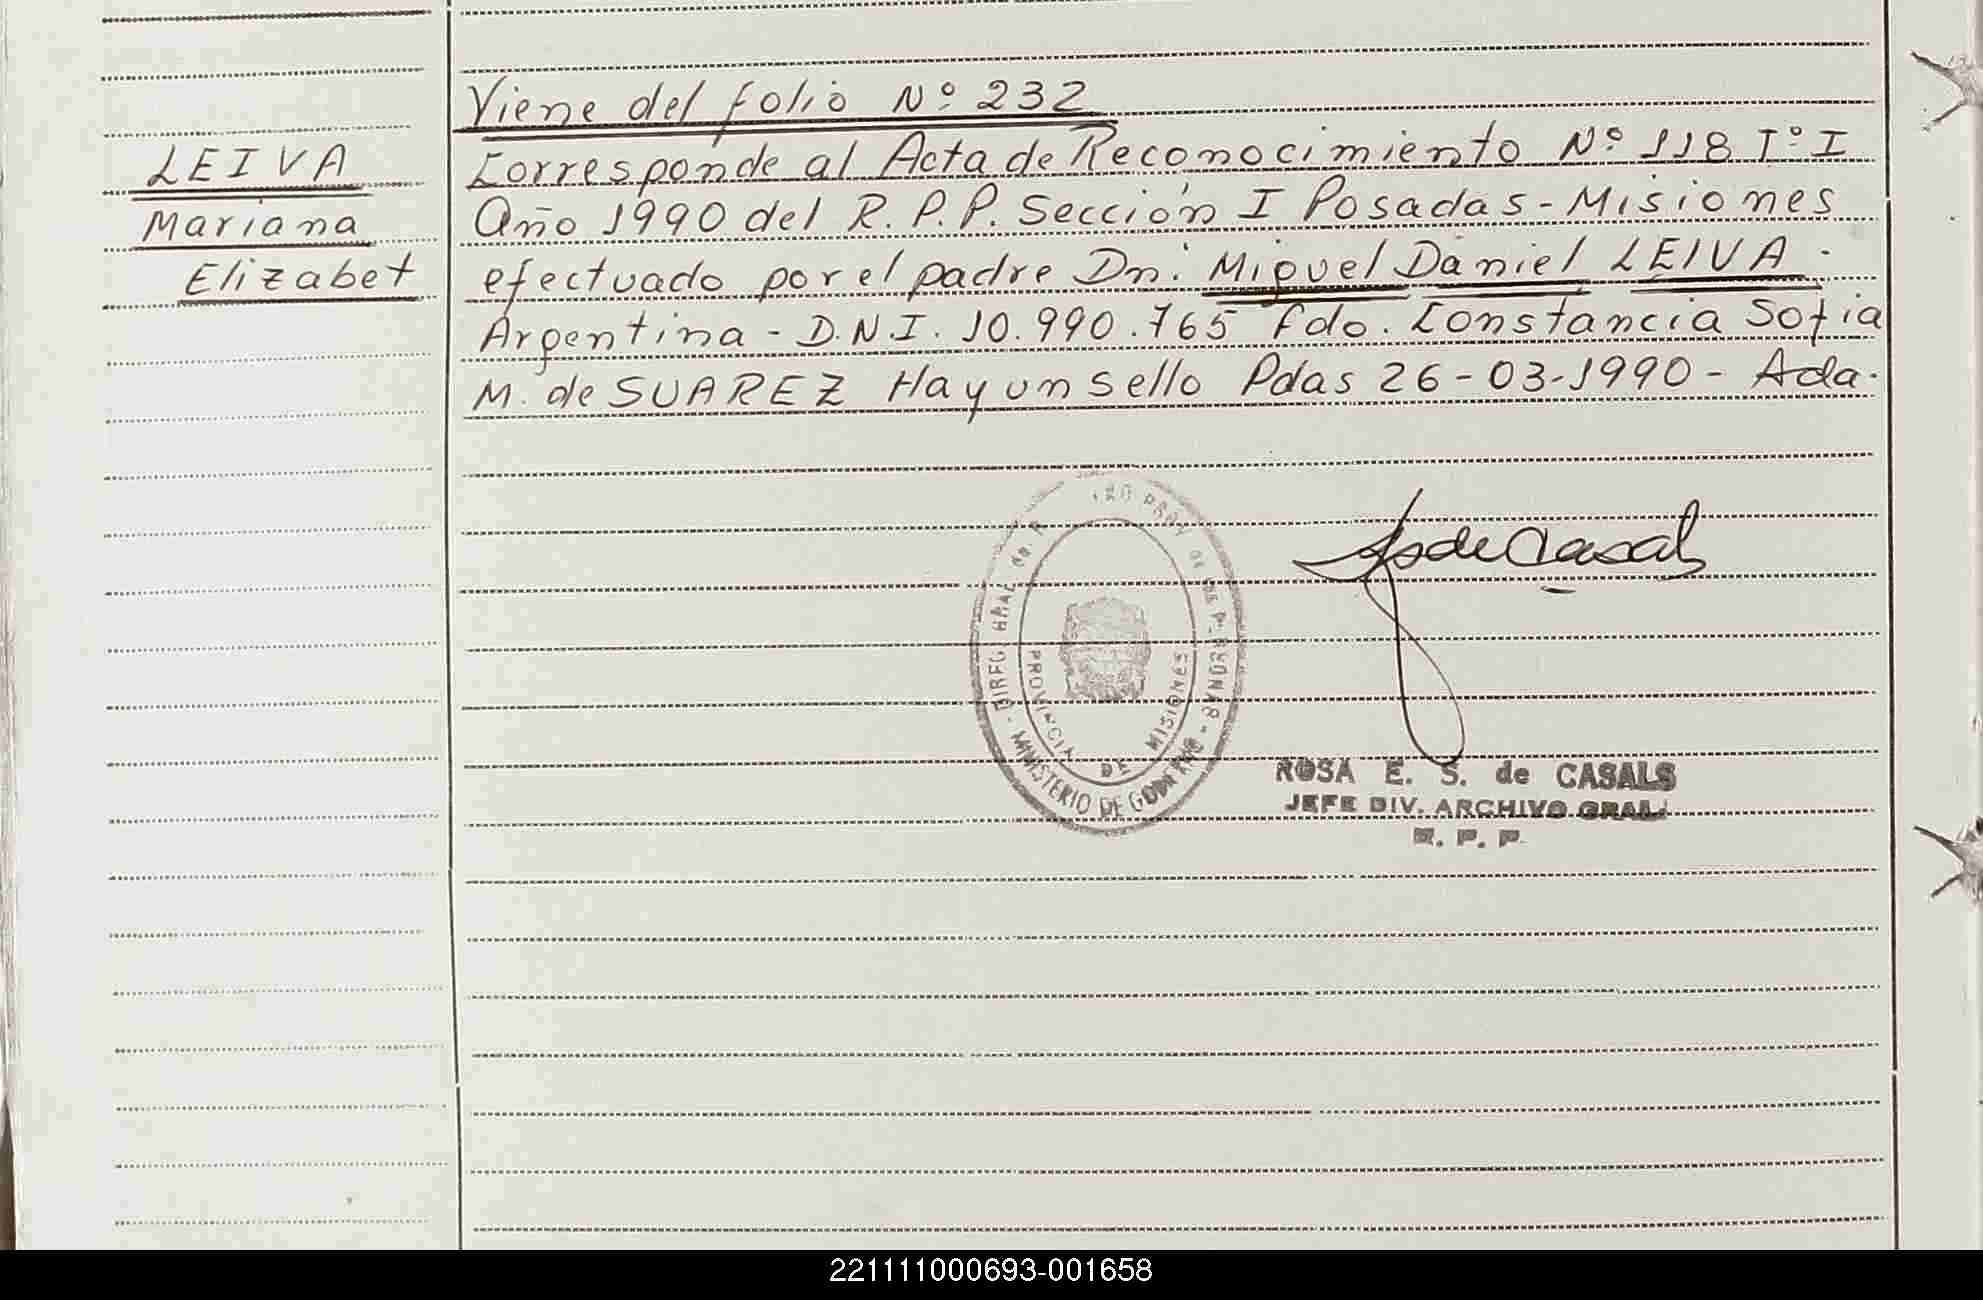 Viene del folio Nº 232
LEIVA
Mariana
Elizabet
Corresponde al Acta de Reconocimiento Nº 118 Tº I
Año 1990 del R. P. P. Sección I Posadas - Misiones
efectuado por el padre Dn. Miguel Daniel LEIVA.
Argentina - D.N.I. 10.990.765 Fdo. Constancia Sofia
M. de SUAREZ Hay un sello Pdas 26-03-1990 - Ada.
de Casals
DIREC GRAL de
MINISTERIO DE GOBIERNO
PROVINCIA DE MISIONES
ROSA E. S. de CASALS
JEFE DIV. ARCHIVO GRAL.
R. P. P.
221111000693-001658